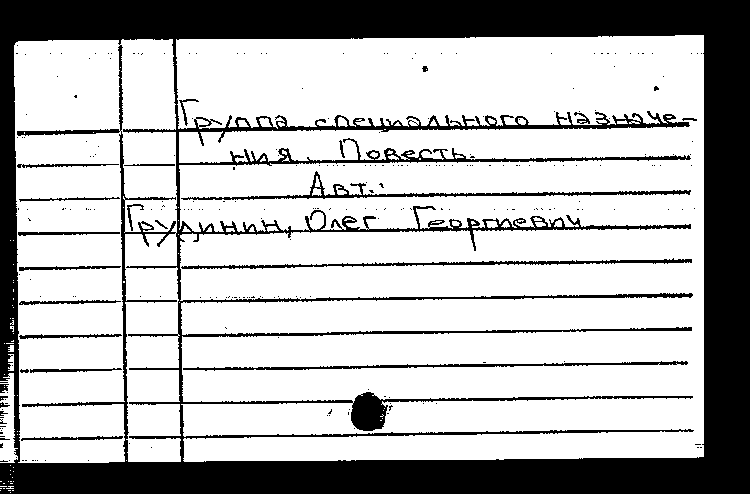 Группа специального назначе-
ния. Повесть.
Авт.:
Грудинин, Олег Георгиевич